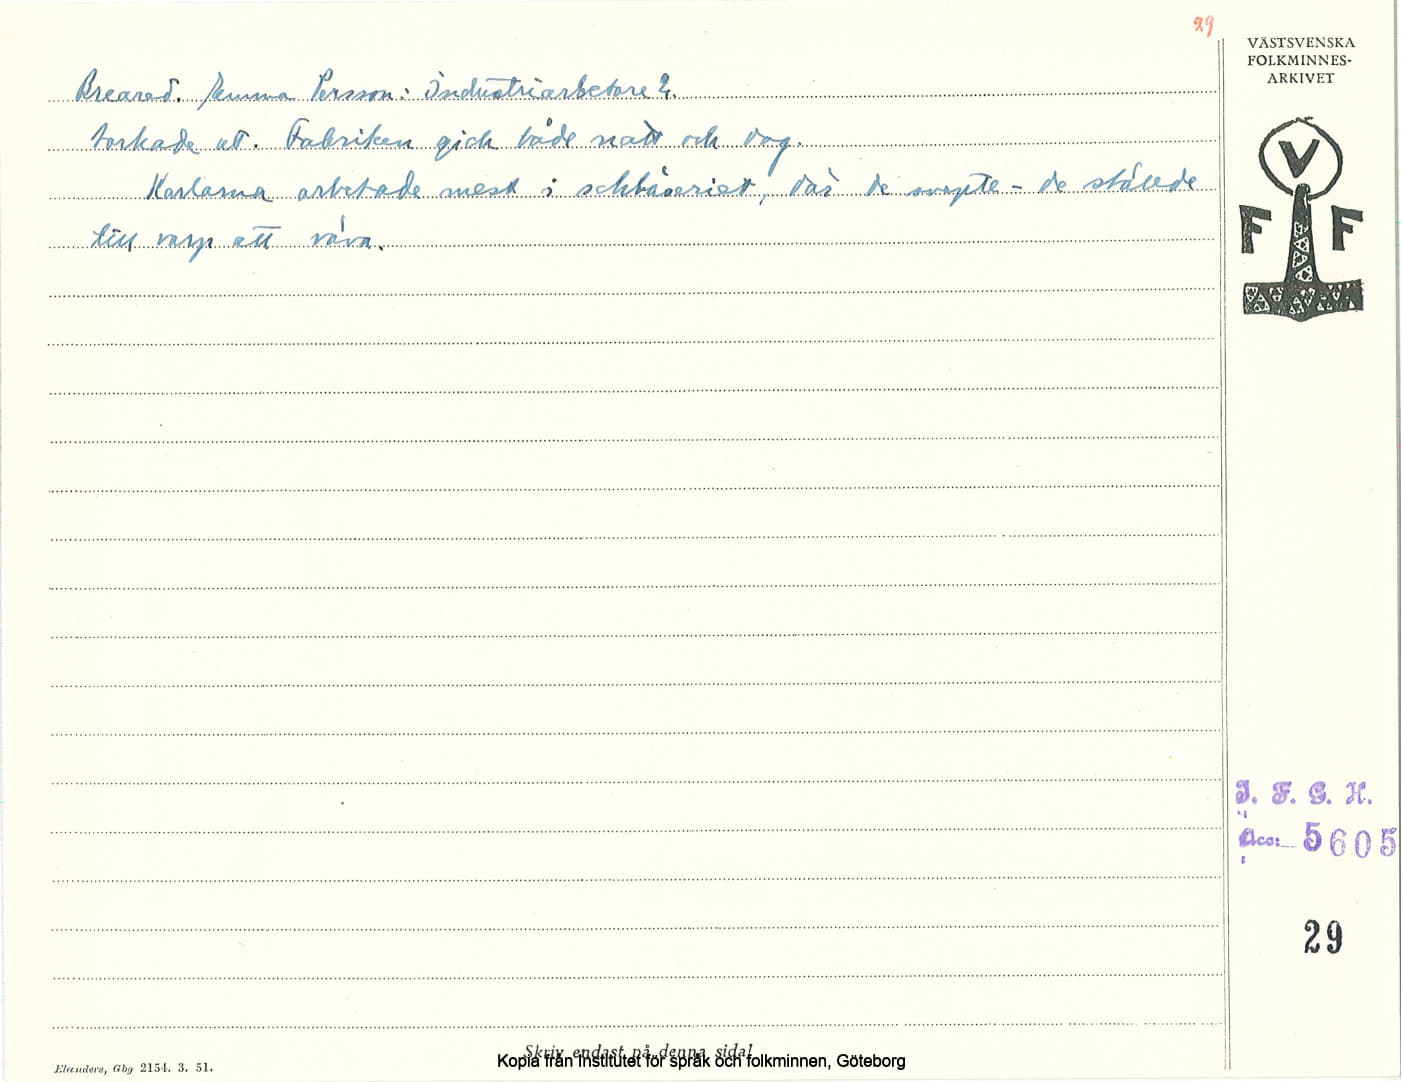 29
VÄSTSVENSKA
FOLKMINNES-
ARKIVET
Breared. Emma Persson: Industriarbetare 2.
torkade ut. Fabriken gick både natt och dag.
Karlarna arbetade mest i schläseriet, där de svepte – de ställde
till varp att väva.
V
F F
I. F. G. H.
Acc: 5605
29
Skriv endast på denna sida!
Kopia från Institutet för språk och folkminnen, Göteborg
Elanders, Gbg 2154. 3. 51.